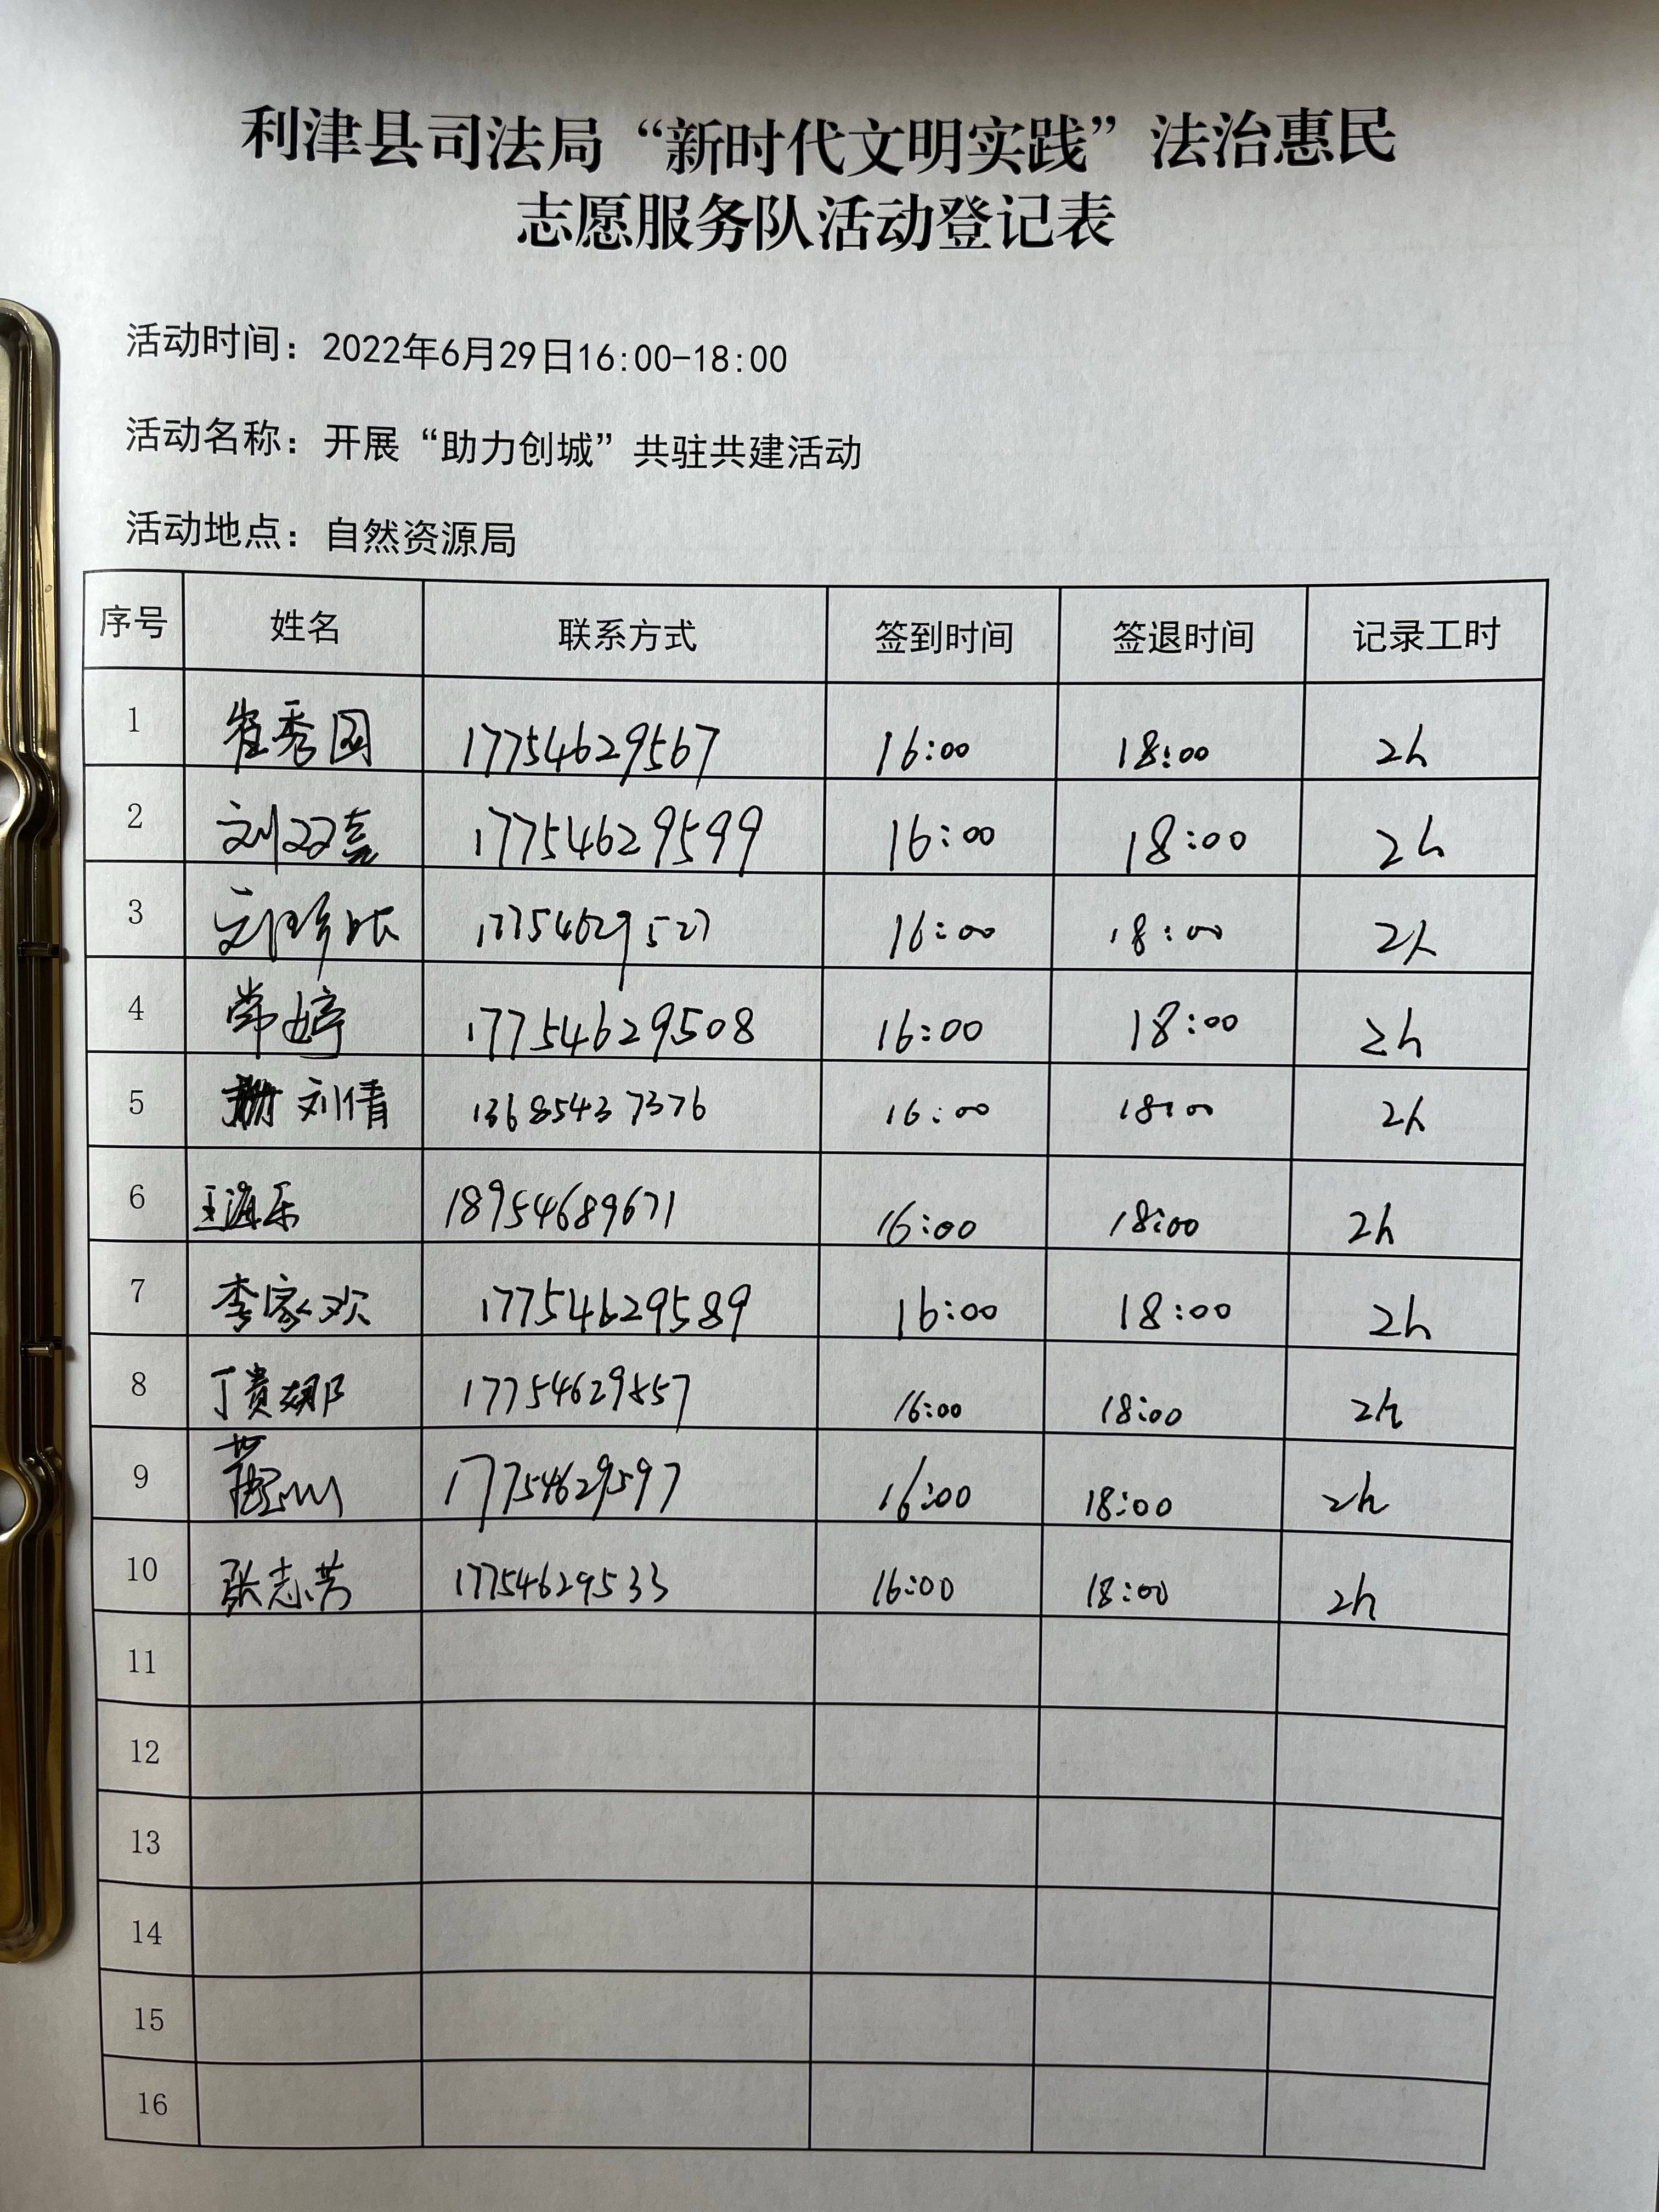 利津县司法局“新时代文明实践”法治惠民
志愿服务队活动登记表
活动时间：2022年6月29日16:00-18:00
活动名称：开展“助力创城”共驻共建活动
活动地点：自然资源局
序号 姓名 联系方式 签到时间 签退时间 记录工时
1 崔秀国 17754629567 16:00 18:00 2h
2 刘双喜 17754629599 16:00 18:00 2h
3 17754629527 16:00 18:00 2h
4 常婷 17754629508 16:00 18:00 2h
5 刘倩 13685437376 16:00 18:00 2h
6 王海乐 18954689671 16:00 18:00 2h
7 李家欢 17754629589 16:00 18:00 2h
8 丁贵娜 17754629557 16:00 18:00 2h
9 17754629597 16:00 18:00 2h
10 张志芳 17754629533 16:00 18:00 2h
11
12
13
14
15
16